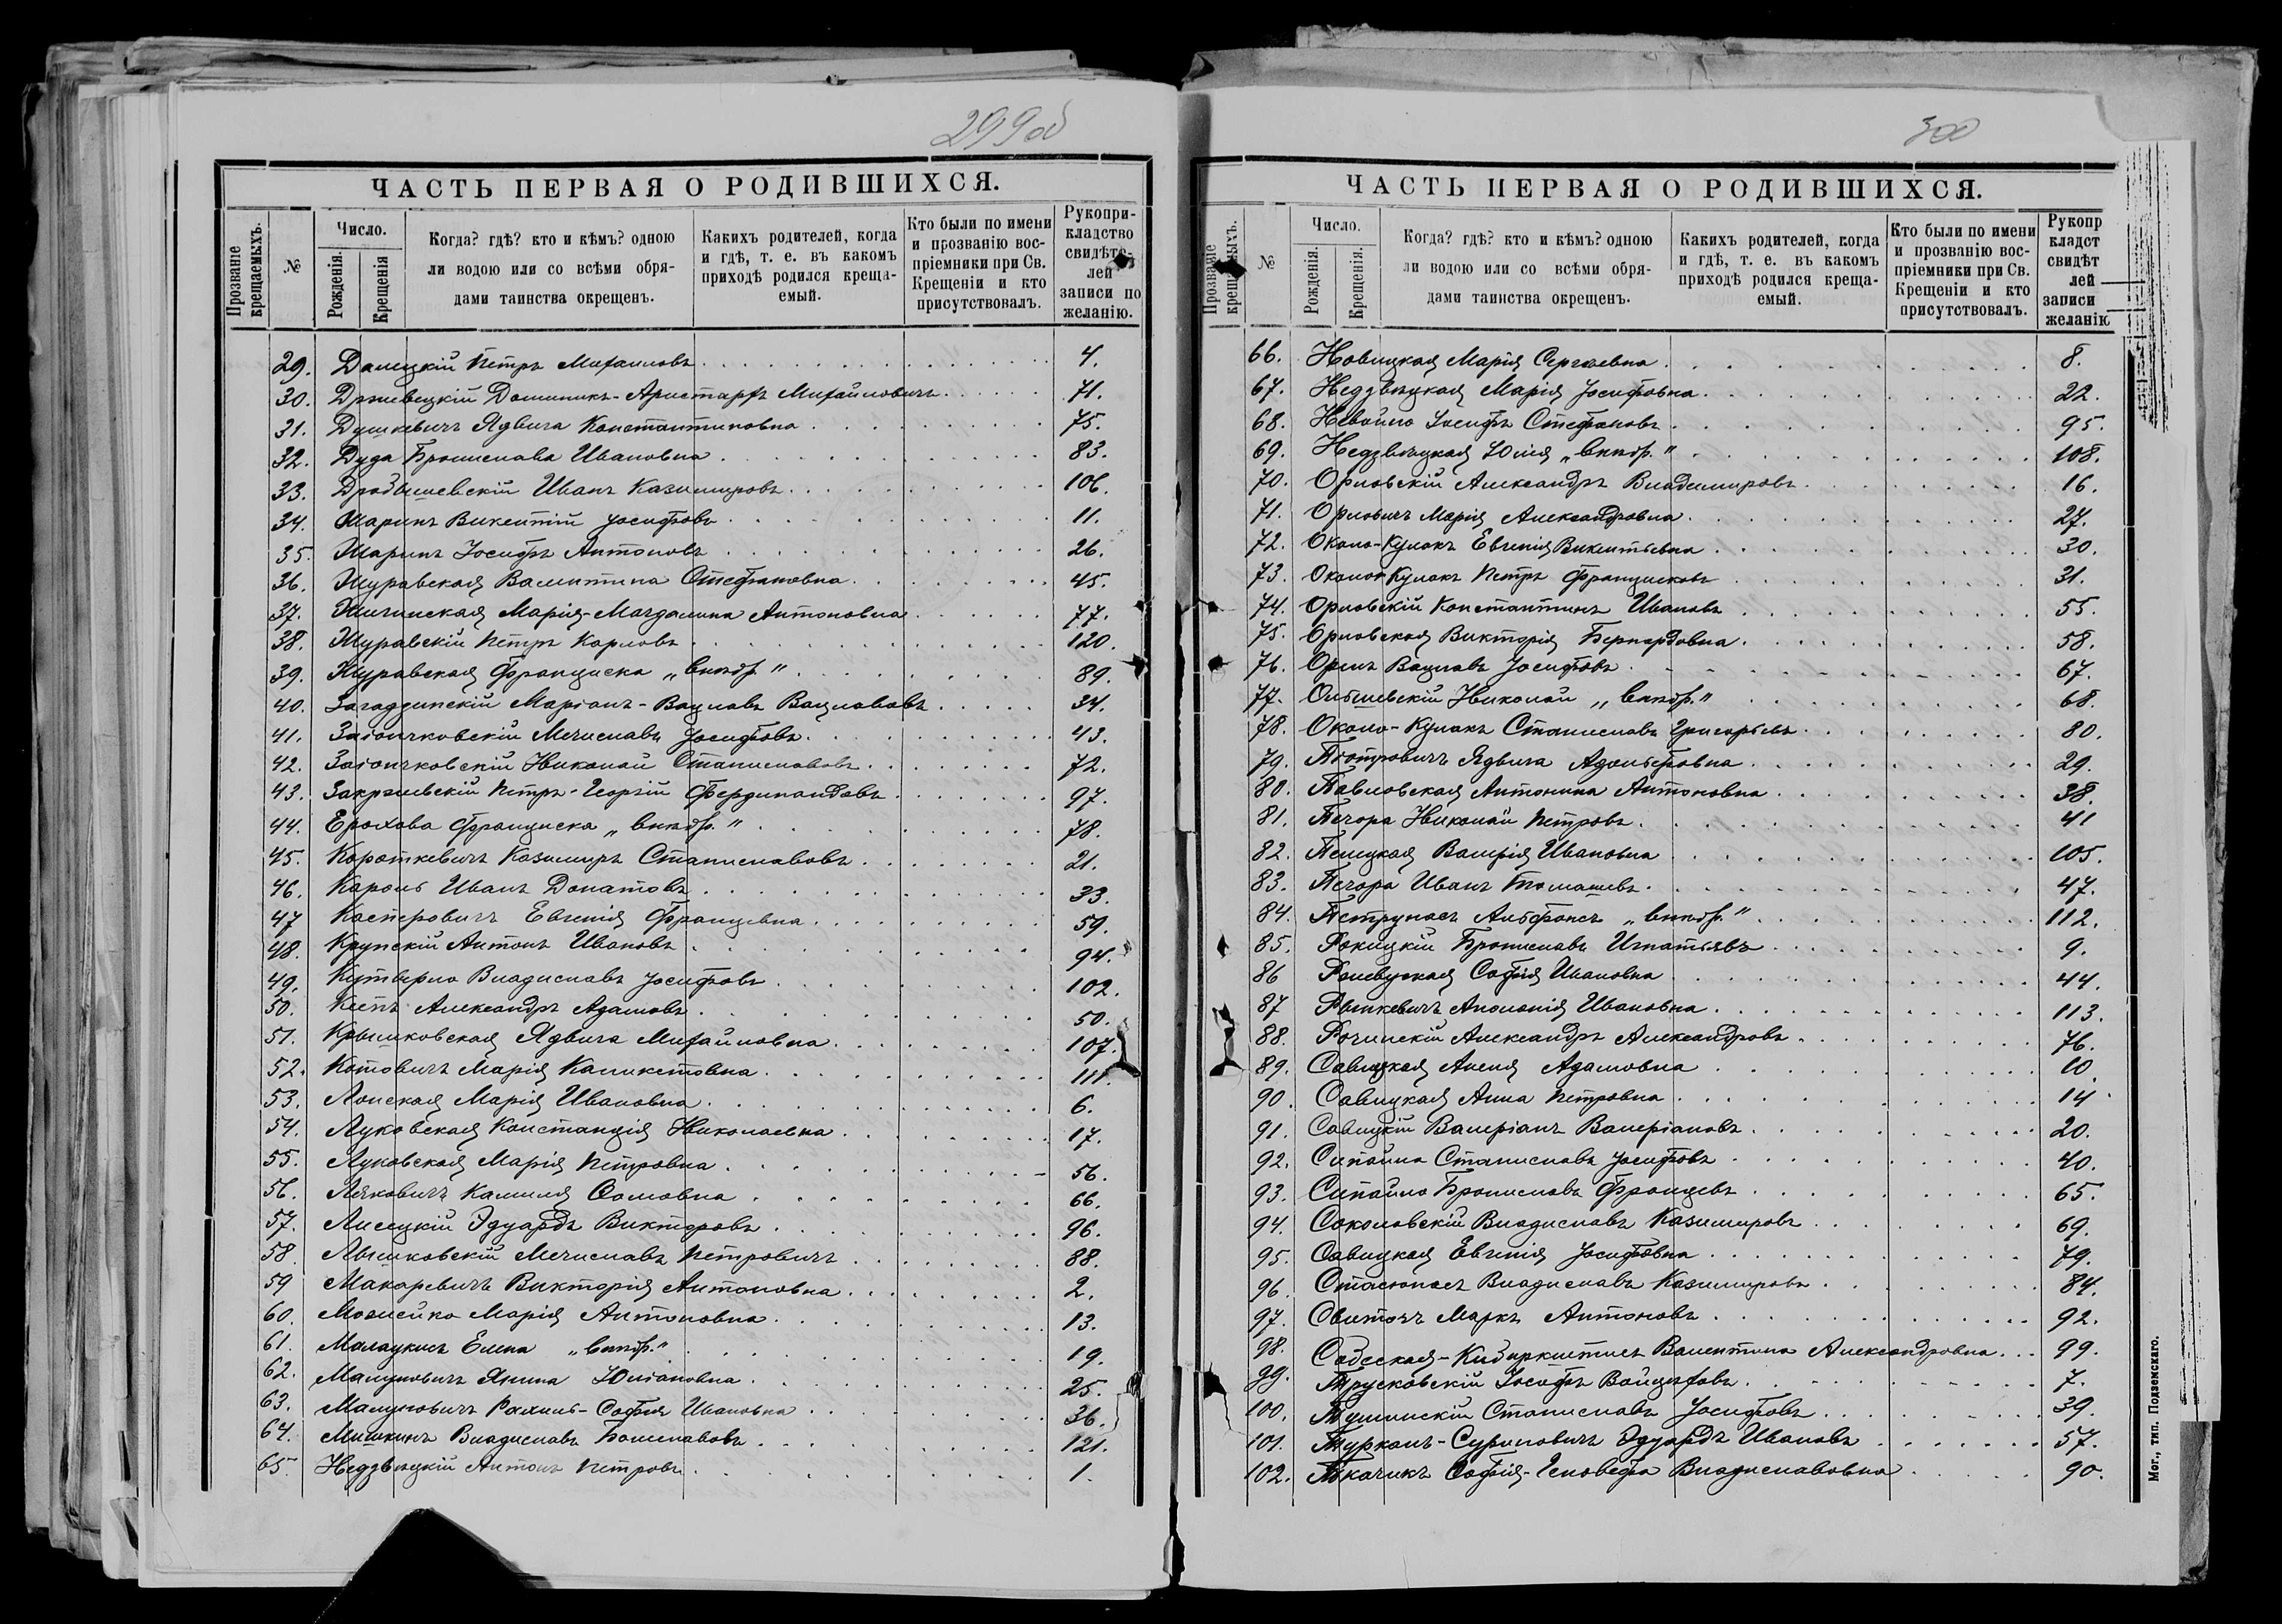 299об
ЧАСТЬ ПЕРВАЯ О РОДИВШИХСЯ.
Прозваніе крещаемыхъ.
№
Число.
Рожденія.
Крещенія
Когда? гдѣ? кто и кѣмъ? одною
ли водою или со всѣми обря-
дами таинства окрещенъ.
Какихъ родителей, когда
и гдѣ, т. е. въ какомъ
приходѣ родился креща-
емый.
Кто были по имени
и прозванію вос-
пріемники при Св.
Крещеніи и кто
присутствовалъ.
Рукопри-
кладство
свидѣте-
лей
записи по
желанію.
29. Далецкій Петръ Михаиловъ 4.
30. Држевецкій Доминикъ-Аристархъ Михайловичъ 71.
31. Душкевичъ Ядвига Константиновна 75.
32. Дуда Бронислава Ивановна 83.
33. Дробышевскій Иванъ Казимировъ 106.
34. Жаринъ Викентій Іосифовъ 11.
35. Жаринъ Іосифъ Антоновъ 26.
36. Журавская Валентина Стефановна 45.
37. Жичинская Марія-Магдалина Антоновна 77.
38. Журавскій Петръ Карловъ 120.
39. Журавская Франциска „внѣбр.“ 89.
40. Загаддинскій Маріанъ-Вацлавъ Вацлавовъ 34.
41. Заіончковскій Мечиславъ Іосифовъ 43.
42. Заіончковскій Николай Станиславовъ 72.
43. Закржевскій Петръ-Георгій Фердинандовъ 97.
44. Ерохова Франциска „внѣбр.“ 78.
45. Короткевичъ Казимиръ Станиславовъ 21.
46. Кароль Иванъ Донатовъ 33.
47 Касперовичъ Евгенія Францевна 59.
48. Крупскій Антонъ Ивановъ 94.
49. Кутырло Владиславъ Іосифовъ 102.
50. Александръ Адамовъ 50.
51. Крышковская Ядвига Михайловна 107.
52. Котовичъ Марія Каликстовна 111.
53. Лонская Марія Ивановна 6.
54. Луковская Констанція Николаевна 17.
55. Луковская Марія Петровна 56.
56. Лячковичъ Камилія Ѳомовна 66.
57. Лисецкій Эдуардъ Викторовъ 96.
58 Лышковскій Мечиславъ Петровичъ 88.
59 Макаревичъ Викторія Антоновна 2.
60. Мозисйко Марія Антоновна 13.
61. Малаукисъ Елена „внѣбр.“ 19.
62. Малуновичъ Янина Юліановна 25.
63. Малуновичъ Рахиль-Софія Ивановна 36.
64. Мишкинъ Владиславъ Болеславовъ 121.
65. Недзвѣцкій Антонъ Петровъ 1.
300
ЧАСТЬ ПЕРВАЯ О РОДИВШИХСЯ.
Прозваніе крещаемыхъ.
№
Число.
Рожденія.
Крещенія.
Когда? гдѣ? кто и кѣмъ? одною
ли водою или со всѣми обря-
дами таинства окрещенъ.
Какихъ родителей, когда
и гдѣ, т. е. въ какомъ
приходѣ родился креща-
емый.
Кто были по имени
и прозванію вос-
пріемники при Св.
Крещеніи и кто
присутствовалъ.
Рукопр
кладст
свидѣт
лей
записи
желанію
66. Новицкая Марія Сергѣевна 8.
67. Недзвѣцкая Марія Іосифовна 22.
68. Невойло Іосифъ Стефановъ 95.
69. Недзвѣцкая Юлія „внѣбр.“ 108.
70. Орловскій Александръ Владимировъ 16.
71. Орловичъ Марія Александровна 27.
72. Около-Кулакъ Евгенія Викентьевна 30.
73. Около-Кулакъ Петръ Францисковъ 31.
74. Орловскій Константинъ Ивановъ 55.
75. Орловская Викторія Бернардовна 58.
76. Орлъ Вацлавъ Іосифовъ 67.
77. Ольшевскій Николай „внѣбр.“ 68.
78. Около-Кулакъ Станиславъ Григорьевъ 80.
79. Піотровичъ Ядвига Адольфовна 29.
80. Павловская Антонина Антоновна 38.
81. Печора Николай Петровъ 41
82. Пелецкая Валерія Ивановна 105.
83. Печора Иванъ Томашевъ 47.
84. Петрунасъ Альфонсъ „внѣбр.“ 112.
85. Рокицкій Брониславъ Игнатьевъ 9.
86 Софія Ивановна 44.
87 Рымкевичъ Аполонія Ивановна 113.
88. Рочинскій Александръ Александровъ 76.
89. Савицкая Анеля Адамовна 10
90. Савицкая Анна Петровна 14
91. Савицкій Валеріанъ Валеріановъ 20.
92. Сипайло Станиславъ Іосифовъ 40.
93. Сипайло Брониславъ Францевъ 65.
94. Соколовскій Владиславъ Казимировъ 69.
95. Савицкая Евгенія Іосифовна 79.
96. Стасюнасъ Владиславъ Казимировъ 84.
97. Свиточъ Маркъ Антоновъ 92.
98. Валентина Александровна 99.
99. Трусковскій Іосифъ Войцѣховъ 7.
100. Тушинскій Станиславъ Іосифовъ 39.
101. Турканъ-Суриновичъ Эдуардъ Ивановъ 57.
102. Ткачикъ Софія-Геновефа Владиславовна 90.
Мог., тип. Подземскаго.